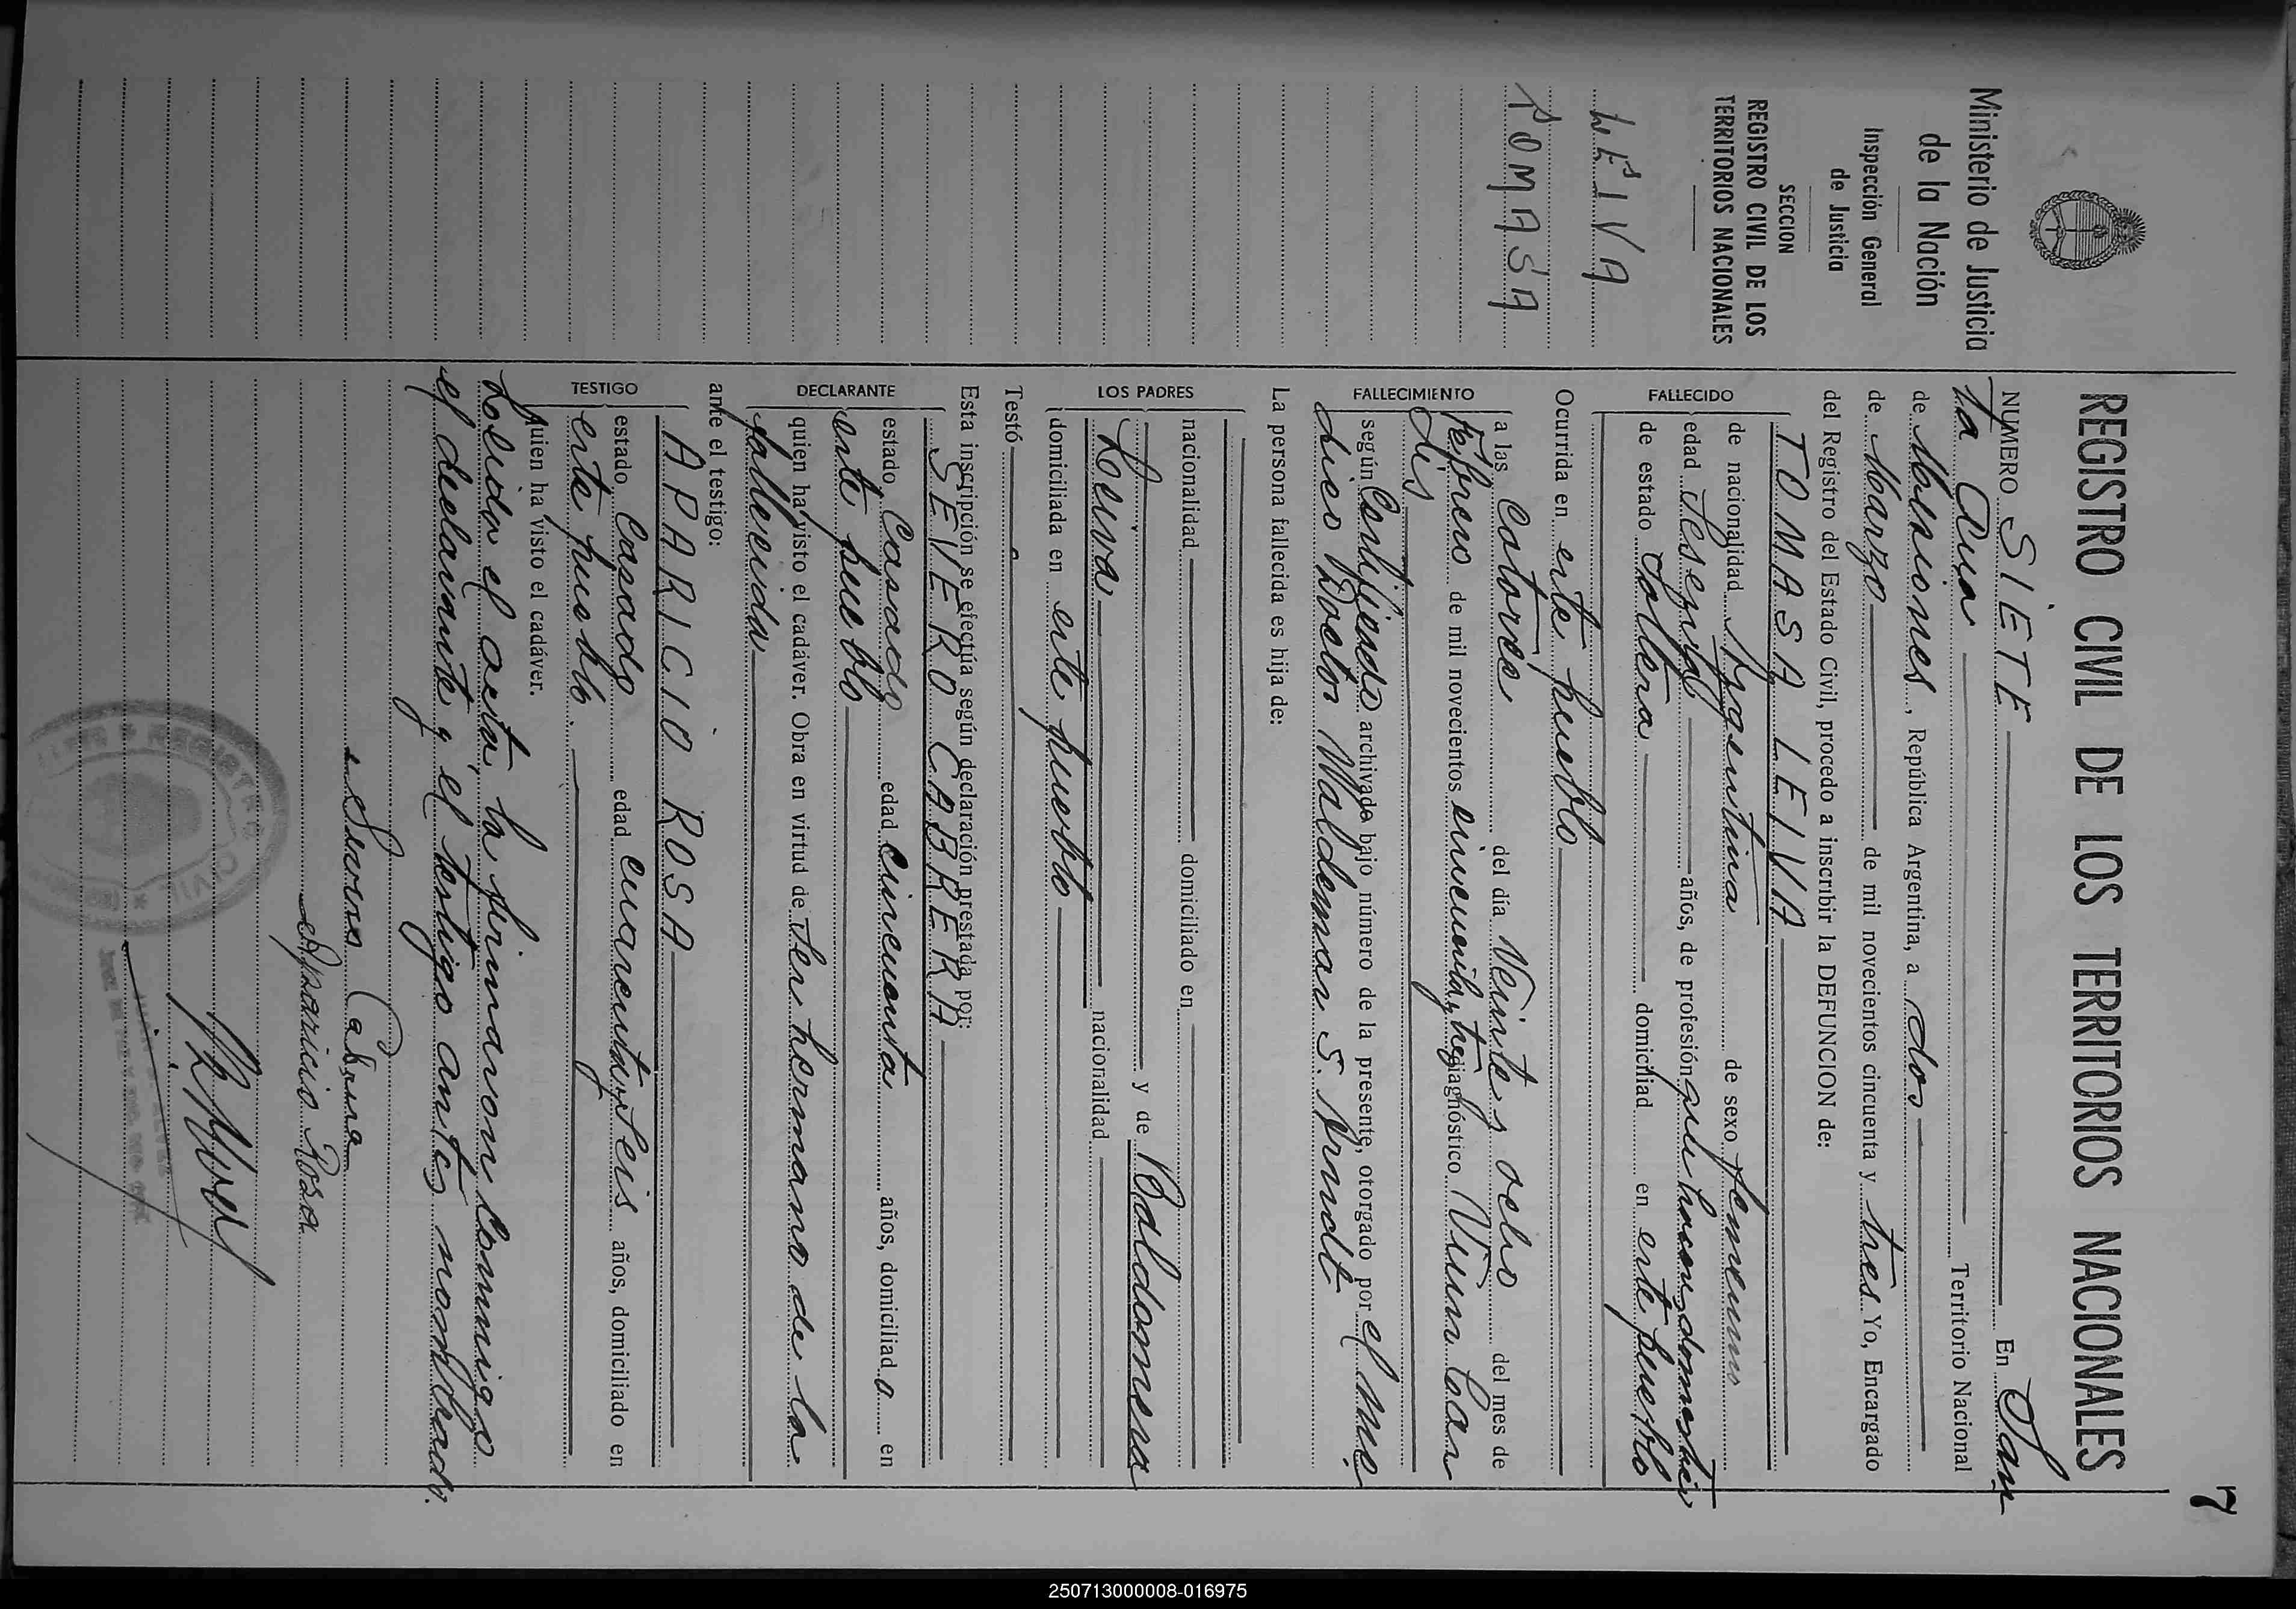 7
REGISTRO CIVIL DE LOS TERRITORIOS NACIONALES
Ministerio de Justicia
de la Nación
Inspección General
de Justicia
SECCION
REGISTRO CIVIL DE LOS
TERRITORIOS NACIONALES
LEIVA
TOMASA
NUMERO SIETE En San
ta Ana Territorio Nacional
de Misiones, República Argentina, a dos
de Marzo de mil novecientos cincuenta y tres Yo, Encargado
del Registro del Estado Civil, procedo a inscribir la DEFUNCION de:
FALLECIDO
TOMASA LEIVA
de nacionalidad Argentina de sexo femenino
edad sesenta años, de profesión quehaceres domésticos
de estado soltera domiciliad en este pueblo
Ocurrida en este pueblo
FALLECIMIENTO
a las catorce del día Veinte y ocho del mes de
febrero de mil novecientos cincuenta y tres diagnóstico
según Certificado archivado bajo número de la presente, otorgado por el mé
dico Doctor Waldemar S. Arndt
La persona fallecida es hija de:
LOS PADRES
nacionalidad domiciliado en
y de Baldomera
Leiva nacionalidad
domiciliada en este pueblo
Testó
Esta inscripción se efectúa según declaración prestada por:
DECLARANTE
SEVERO CABRERA
estado Casado edad cincuenta años, domiciliado en
este pueblo
quien ha visto el cadáver. Obra en virtud de ser hermano de la
fallecida
ante el testigo:
TESTIGO
APARICIO ROSA
estado Casado edad cuarenta y seis años, domiciliado en
este pueblo
quien ha visto el cadáver.
Leida el acta, la firmaron conmigo
el declarante y el testigo antes nombrado.
Severo Cabrera
Aparicio Rosa
REGISTRO CIVIL
250713000008-016975